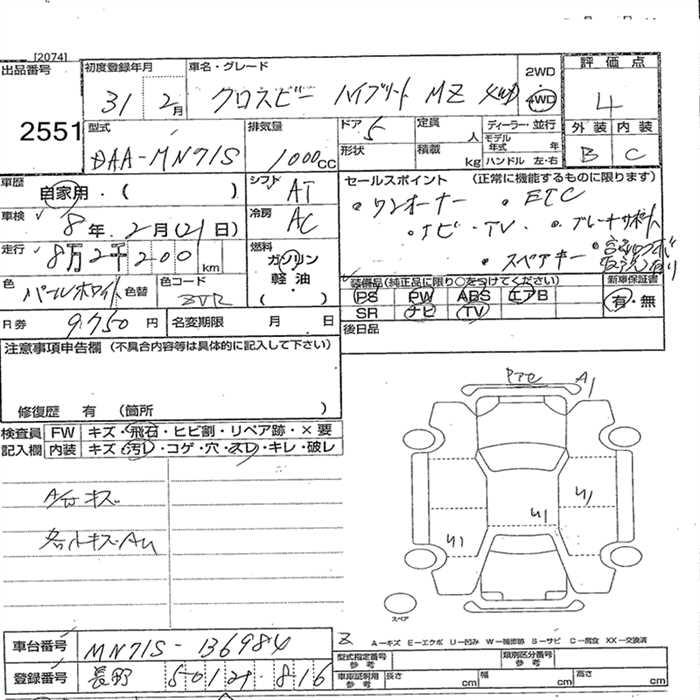 [2074]
出品番号 初度登録年月 車名・グレード 2WD 評価点
31 2月 クロスビー ハイブリット MZ 4WD 4WD 4
2551 型式 排気量 ドア 5 定員 人 ディーラー・並行 外装 内装
DAA-MN71S 1000cc 形状 積載 kg モデル年式 年 ハンドル 左・右 B C
車歴 自家用・( ) シフト AT セールスポイント (正常に機能するものに限ります)
車検 8年 2月(21日) 冷房 AC ・ワンオーナー ・ETC
・ナビ・TV ・ブレーキサポート
走行 8万2千200km 燃料 ガソリン 軽油 ( ) ・スペアキー
色 パールホワイト 色替 色コード ZVR 装備品(純正品に限り○をつけてください) 新車保証書
PS PW ABS エアB 有・無
R券 9750円 名変期限 月 日 SR ナビ TV
後日品
注意事項申告欄 (不具合内容等は具体的に記入して下さい)
修復歴 有 (箇所 )
検査員 FW キズ・飛石・ヒビ割・リペア跡・×要
記入欄 内装 キズ・汚レ・コゲ・穴・スレ・キレ・破レ
A1
スペア
A-キズ E-エクボ U-凹み W-補修跡 S-サビ C-腐食 XX-交換済
車台番号 MN71S-136984
型式指定番号 参考 類別区分番号 参考
登録番号 長野 501 た 816
車庫証明用 参考 長さ cm 幅 cm 高さ cm